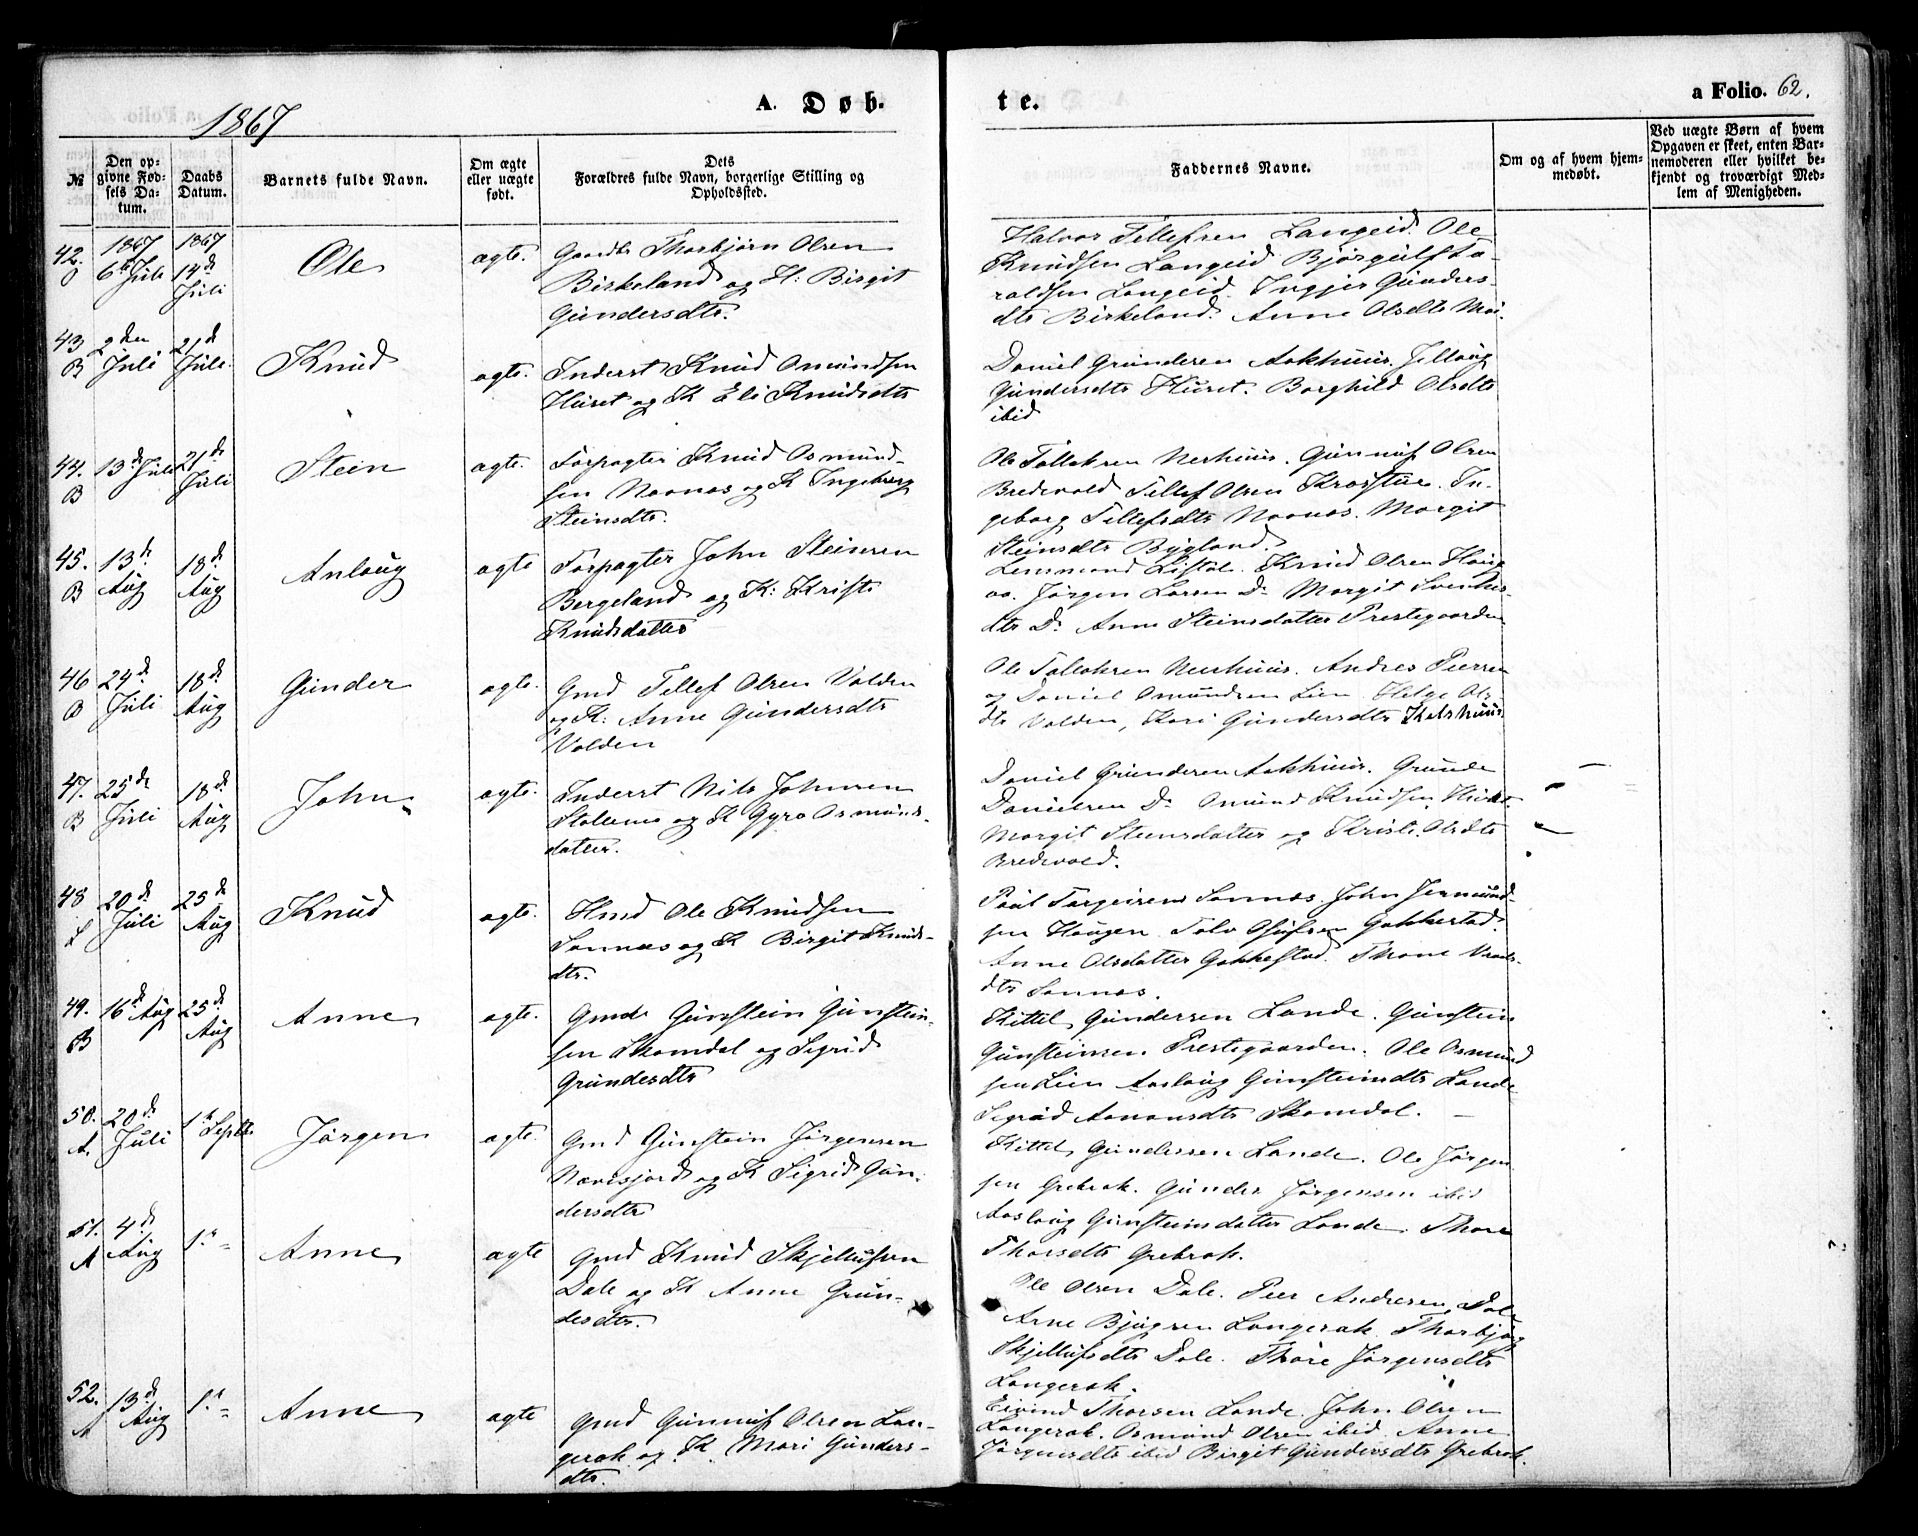 1867
A. Døb-
te.
a Folio. 62.
№
Den op-
givne Fød-
sels Da-
tum.
Daabs
Datum.
Barnets fulde Navn.
Om ægte
eller uægte
født.
Dets
Forældres fulde Navn, borgerlige Stilling og
Opholdssted.
Faddernes Navne.
Om og af hvem hjem-
medøbt.
Ved uægte Børn af hvem
Opgaven er skeet, enten Bar-
nemoderen eller hvilket be-
kjendt og troværdigt Med-
lem af Menigheden.
42.
1867
6te Juli
1867
14de
Juli
Ole
ægte.
Thorbjørn Olsen
Birkeland og H: Birgit
Gundersdtr.
Halvor Tellefsen Langeid. Ole
Knudsen Langeid Bjørgulf Ta-
raldsen Langeid. Ingjer Gunders-
dtr Birkeland. Anne Olsdtr
43
B
2den
Juli
21de
Juli.
Knud
ægte.
Inderst Knud Osmundsen
Huset og K Eli Knudsdtr
Daniel Gundersen Aakhuus. Jellaug
Gundersdtr Huset. Borghild Olsdtr
ibid
44.
B
13de Juli
21de
Juli
Stein
ægte.
Forpagter Knud Osmund-
sen Noanas og K Ingeborg
Steinsdtr.
Ole Tallaksen Neshuus. Gunnuf Olsen
Bredevold Tellef Olsen Krosstue. In-
geborg Tellefsdtr Noanas. Margit
Steinsdtr Bygland.
45.
B
13de
Aug
18de
Aug
Anlaug
ægte
Forpagter John Steinsen
Bergeland og K: Kristi
Knudsdatter
Lensmand Listøl. Knud Olsen Haug-
aa. Jørgen Larsen Do Margit Svenkis-
dtr Do. Anne Steinsdatter Prestegaarden
46
B
24de
Juli
18de
Aug
Gunder
ægte.
Gmd Tellef Olsen Valden
og K: Anne Gundersdtr
Valden
Ole Tallaksen Neshuus. Andres Peersen
og Daniel Osmundsen Lien Helge Ols-
dtr Valden, Kari Gundersdtr
47.
B
25de
Juli
18de
Aug
John
ægte.
Inderst Nils Johnsen
Stallemo og K Gyro Osmunds-
datter.
Daniel Gundersen Aakhuus. Grunde
Danielsen Do Osmund Knudsen Huset
Margit Steensdatter og Kristi Olsdtr
Bredevold.
48
20de
Juli
25de
Aug
Knud
ægte.
Hmd Ole Knudsen
Sannæs og K Birgit Knuds-
dtr.
Paul Torgeirsen Sannæs. John Jermund-
sen Haugen Talv Olufsen Gakkestad.
Anne Olsdatter Gakkestad. Thone
dtr Sannæs.
49.
B
16de Aug
25de
Aug
Anne
ægte.
Gmd Gunstein Gunstein-
sen Skomdal og Sigrid
Grundesdtr
Kittel Gundersen Lande. Gunstein
Gunsteinsen Prestegaarden. Ole Osmund
sen Lien Aaslaug Gunsteinsdtr Lande
Sigrid Aanonsdtr Skomdal.
50.
A.
20de
Juli
1ste Septbr
Jørgen
ægte.
Gmd Gunstein Jørgensen
Nævesjord og K Sigrid Gun-
dersdtr
Kittel Gundersen Lande. Ole Jørgen
sen Grebrok. Gunder Jørgensen ibid
Aaslaug Gunsteinsdatter Lande. Thore
Thorsdtr Grebrok.
51.
A
4de
Aug
1ste =
Anne
ægte
Gmd Knud Skjellufsen
Dale og K Anne Grun-
desdtr.
Ole Olsen Dale. Peer Andresen Dale
Arne Bjugsen Langerak. Thorbjørg
Skjellufsdtr Dale. Thore Jørgensdtr
Langerak.
52.
A
13de
Aug
1ste =
Anne
ægte
Gmd Gunnuf Olsen Lan-
gerak og K. Mari Gunders-
dtr.
Eivind Thorsen Lande. John Olsen
Langerak. Osmund Olsen ibid. Anne
Jørgensdtr ibid Birgit Gundersdtr Grebrok.